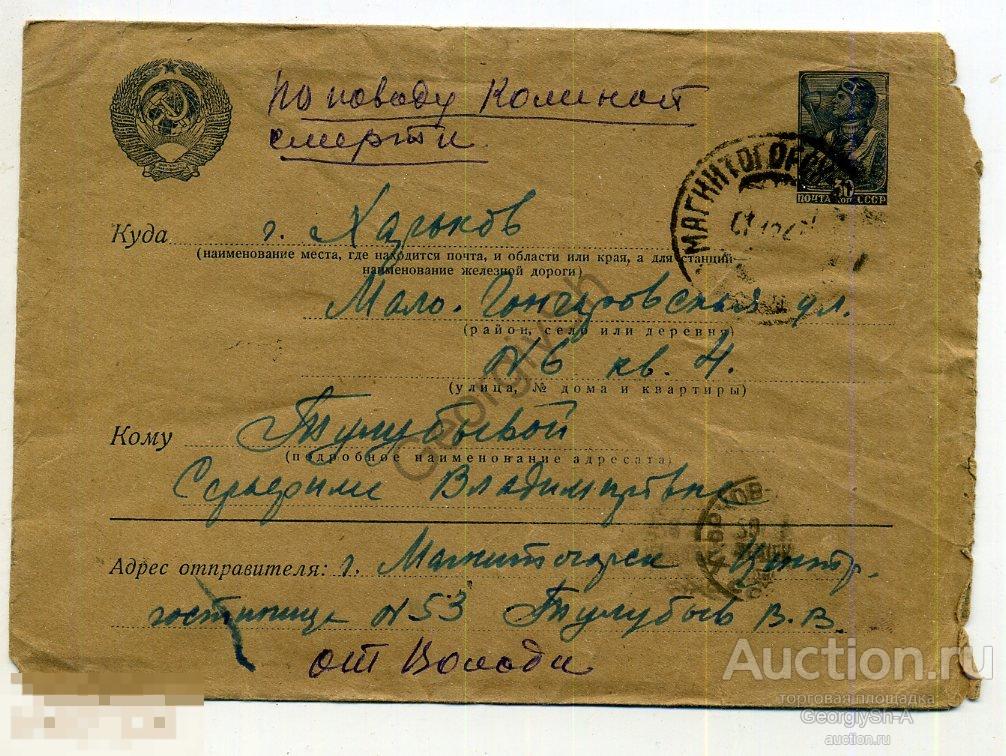 По поводу Колиной
смерти
30
ПОЧТА КОП СССР
МАГНИТОГОРСК
Куда г. Харьков
(наименование места, где находится почта, и области или края, а для станций
наименование железной дороги)
Мало. Гончаровская ул.
(район, село или деревня)
№6 кв. 4.
(улица, № дома и квартиры)
Кому Тулубьевой
(подробное наименование адресата)
Серафиме Владимировне
ХАРЬКОВ
Адрес отправителя: г. Магнитогорск Центр.
гостиница №53 Тулубьев В.В.
от Володи
GeorgiySh
Auction.ru
торговая площадка
GeorgiySh-A
auction.ru